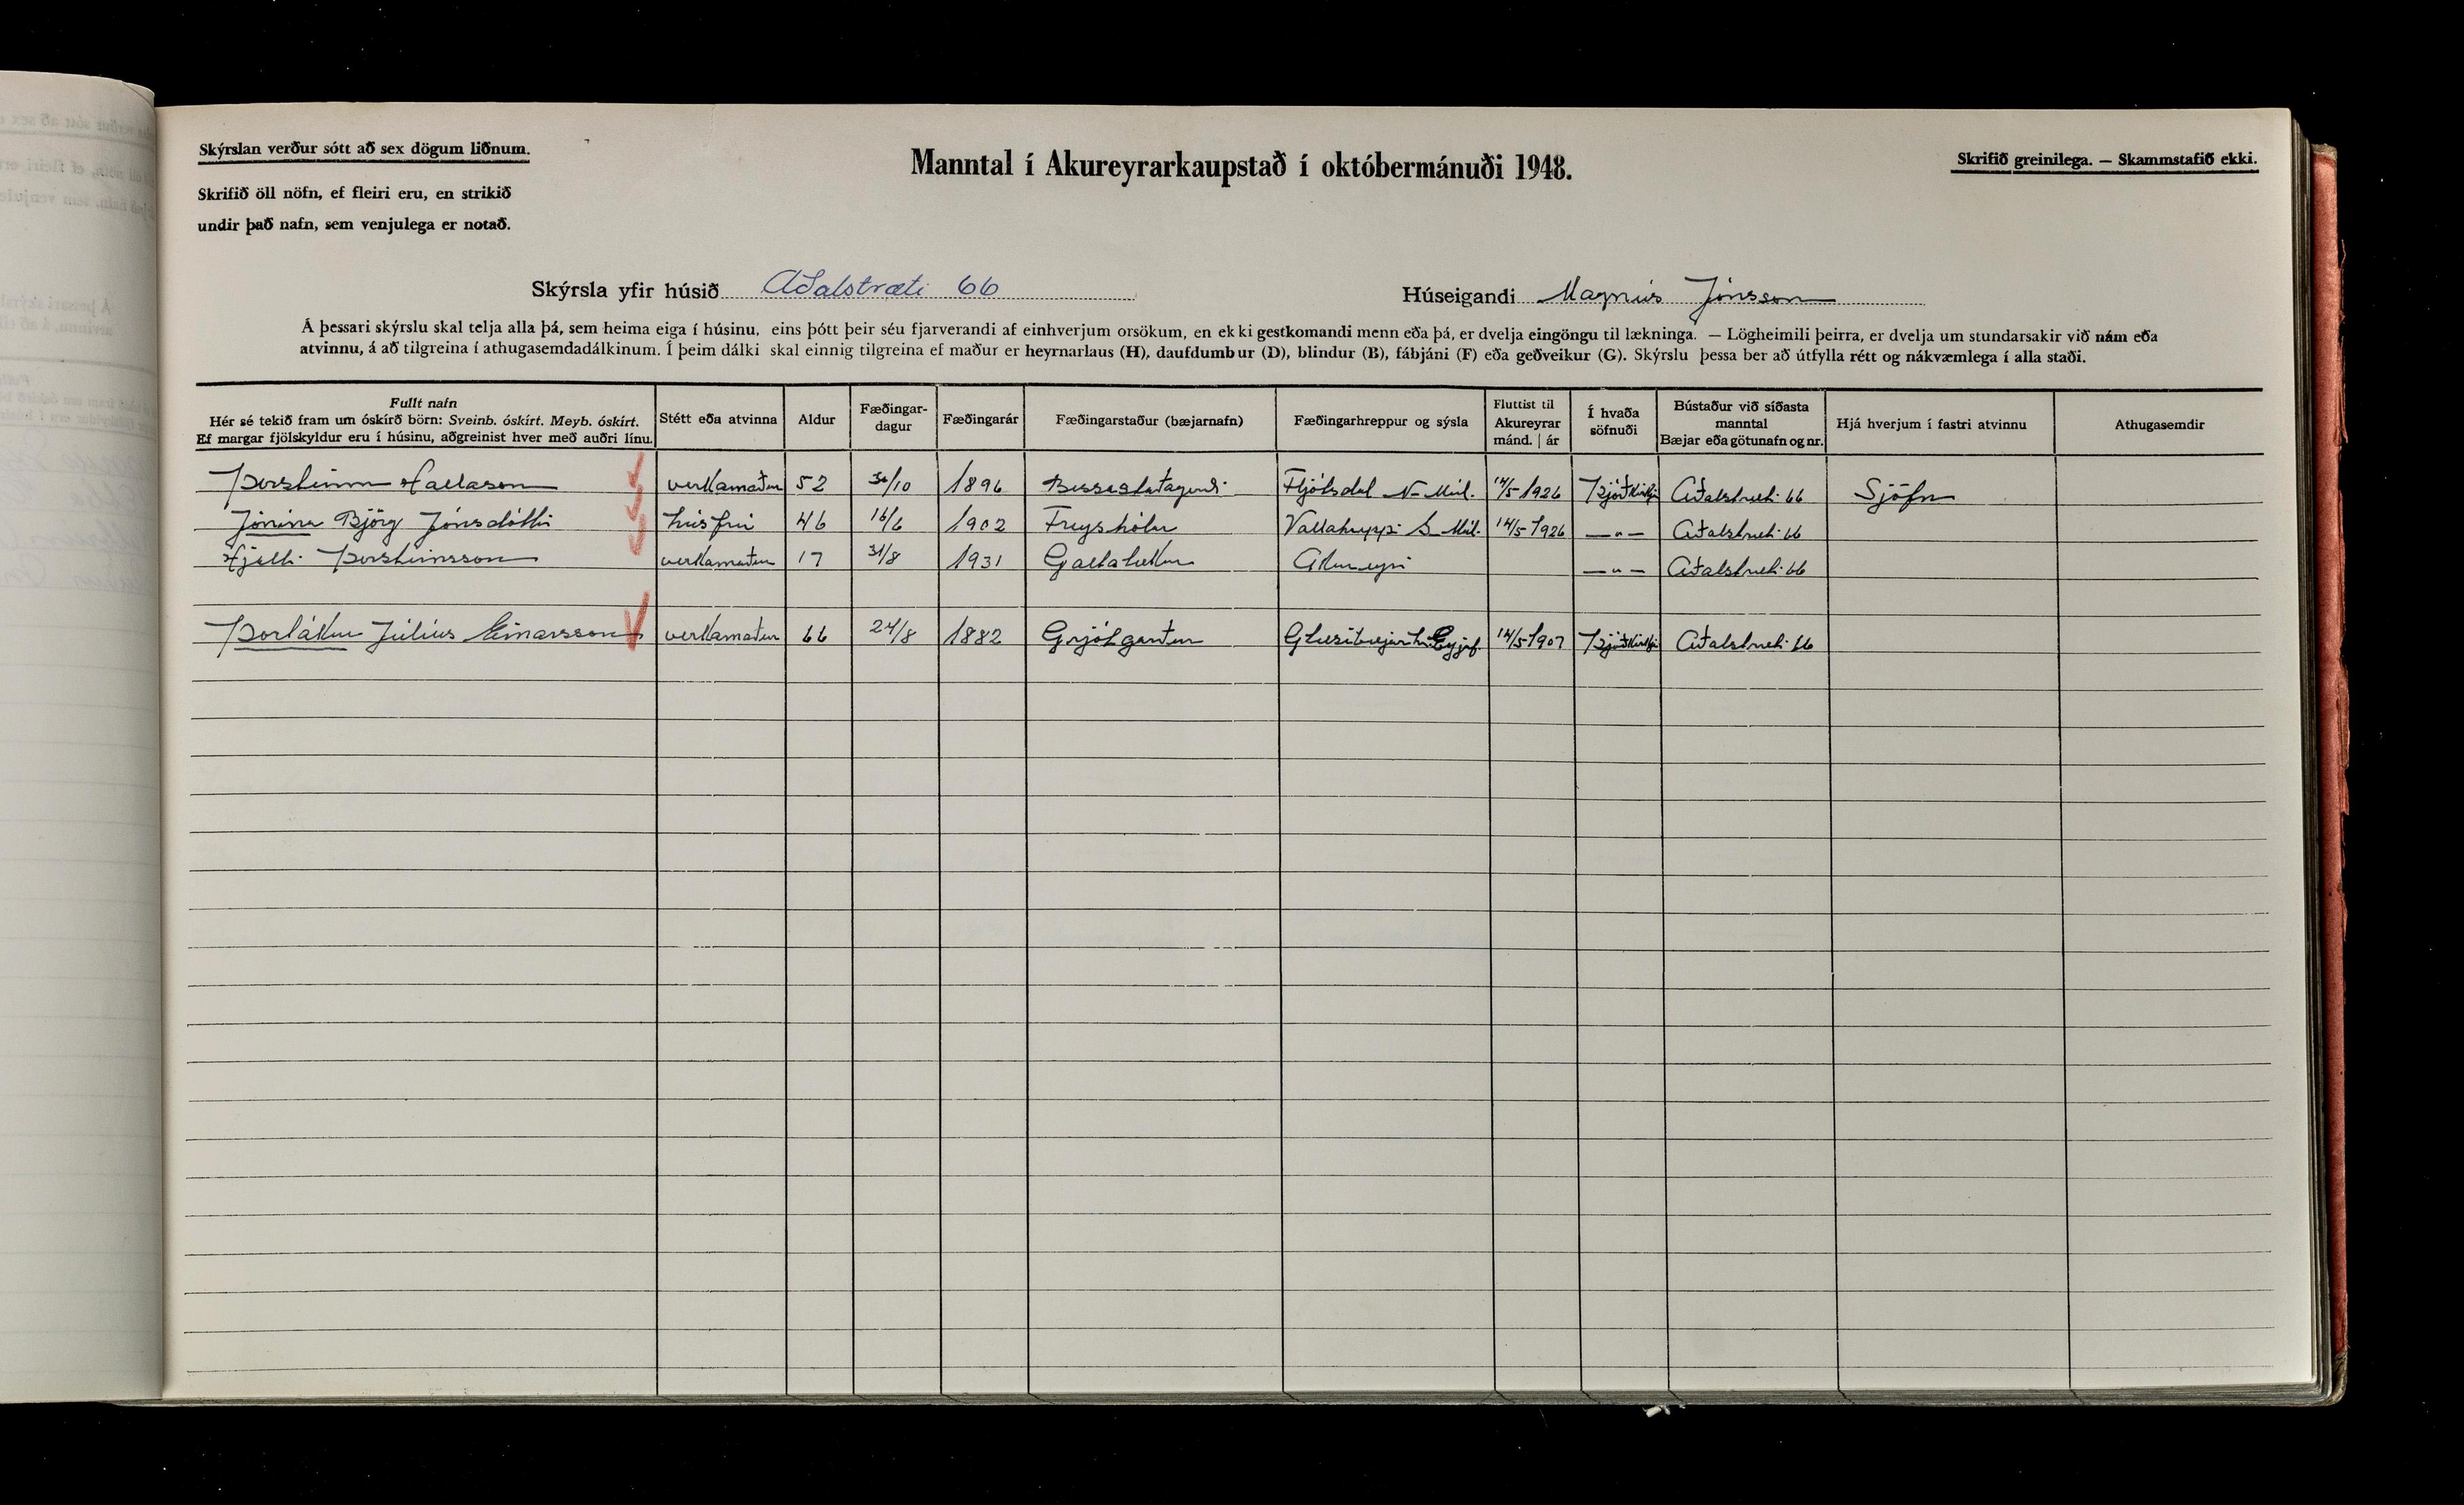 Skýrslan verður sótt að sex dögum liðnum.
Skrifið öll nöfn, ef fleiri eru, en strikið
undir það nafn, sem venjulega er notað.
Manntal í Akureyrarkaupstað í októbermánuði 1948.
Skrifið greinilega. — Skammstafið ekki.
Skýrsla yfir húsið Aðalstræti 66
Húseigandi Magnús Jónsson
Á þessari skýrslu skal telja alla þá, sem heima eiga í húsinu, eins þótt þeir séu fjarverandi af einhverjum orsökum, en ekki gestkomandi menn eða þá, er dvelja eingöngu til lækninga. — Lögheimili þeirra, er dvelja um stundarsakir við nám eða
atvinnu, á að tilgreina í athugasemdadálkinum. Í þeim dálki skal einnig tilgreina ef maður er heyrnarlaus (H), daufdumbur (D), blindur (B), fábjáni (F) eða geðveikur (G). Skýrslu þessa ber að útfylla rétt og nákvæmlega í alla staði.
Fullt nafn
Hér sé tekið fram um óskírð börn: Sveinb. óskírt. Meyb. óskírt.
Ef margar fjölskyldur eru í húsinu, aðgreinist hver með auðri línu.
Stétt eða atvinna
Aldur
Fæðingar-
dagur
Fæðingarár
Fæðingarstaður (bæjarnafn)
Fæðingarhreppur og sýsla
Fluttist til
Akureyrar
mánd. | ár
Í hvaða
söfnuði
Bústaður við síðasta
manntal
Bæjar eða götunafn og nr.
Hjá hverjum í fastri atvinnu
Athugasemdir
Þorsteinn Hallason verkamaður 52 30/10 1896 Bessastaðagerði Fljótsdal N-Múl. 14/5 1926 Þjóðkirkju Aðalstræti 66 Sjöfn
Jónína Björg Jónsdóttir húsfrú 46 16/6 1902 Freyshólar Vallahreppi S-Múl. 14/5 1926 —"— Aðalstræti 66
Hjalti Þorsteinsson verkamaður 17 31/8 1931 Akureyri —"— Aðalstræti 66
Þorlákur Júlíus Einarsson verkamaður 66 24/8 1882 Grjótgarður Glæsibæjarhr. Eyjaf. 14/5 1907 Þjóðkirkju Aðalstræti 66